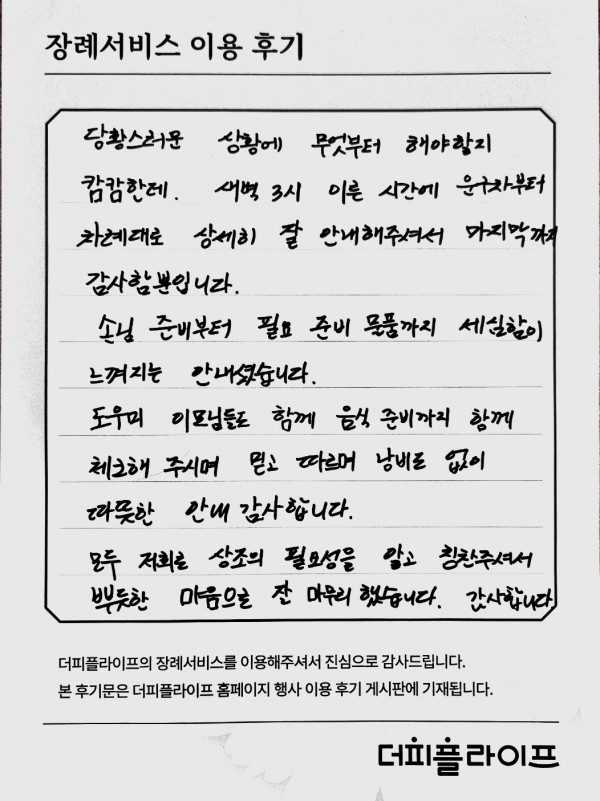 장례서비스 이용 후기
당황스러운 상황에 무엇부터 해야할지
캄캄한데. 새벽 3시 이른 시간에 운구차부터
차례대로 상세히 잘 안내해주셔서 마지막까지
감사할뿐입니다.
손님 준비부터 필요 준비 물품까지 세심함이
느껴지는 안내셨습니다.
도우미 이모님들도 함께 음식 준비까지 함께
체크해 주시며 믿고 따르며 낭비도 없이
따뜻한 안내 감사합니다.
모두 저희로 상조의 필요성을 알고 칭찬주셔서
뿌듯한 마음으로 잔 마무리 했습니다. 감사합니다
더피플라이프의 장례서비스를 이용해주셔서 진심으로 감사드립니다.
본 후기문은 더피플라이프 홈페이지 행사 이용 후기 게시판에 기재됩니다.
더피플라이프